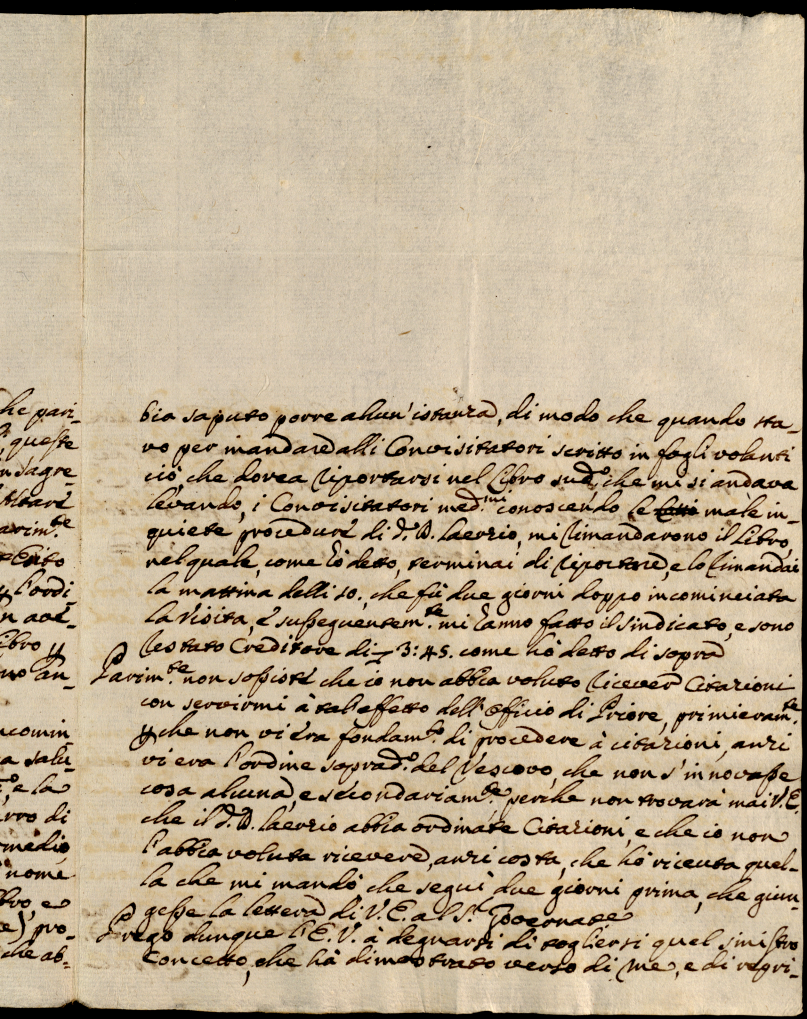 he pari-
queste
n sagre-
Altare
arim.te
l'ordi-
n ave-
ibro y
no an-
ncomin
a salu-
e la
rro di
medio
nome
bro, e
e) pro-
che ab-
bia saputo porre alcun'istanza, di modo che quando sta-
vo per mandare alli Convisitatori scritto in fogli volanti
ciò che dovea riportarsi nel libro sud.o, che mi si andava
levando, i Convisitatori med.mi conoscendo le male in-
quiete procedure di d.o D. Laerzio, mi rimandarono il Libro,
nel quale, come hò detto, terminai di riportare, e lo rimandai
la mattina delli 10, che fù due giorni doppo incominciata
la Visita, e susseguentem.te mi hanno fatto il sindicato, e sono
restato Creditore di 3:45. come hò detto di sopra
Parim.te non sossiste che io non abbia voluto ricevere Citazioni
con servirmi à tal'effetto dell'Officio di Priore, primieram.te
che non vi era fondam.to di procedere à citazioni, anzi
vi era l'ordine soprad.o del Vescovo, che non s'innovasse
cosa alcuna, e secondariam.te perche non trovarà mai V.E.
che il d.o D. Laerzio abbia ordinate Citazioni, e che io non
l'abbia voluta ricevere, anzi costa, che hò ricevuta quel-
la che mi mandò che seguì due giorni prima, che giun-
gesse la lettera di V.E. al S.r Governatore
Prego dunque l'E.V. à degnarsi di togliersi quel sinistro
Concetto, che hà dimostrato verso di me, e di repri-